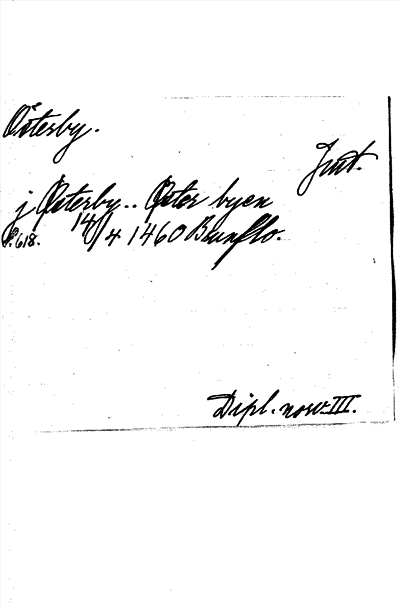 Österby.
Jmt.
j Østerby.. Øster byen
s. 618. 14/4 1460 Brunflo.
Dipl. norv. III.